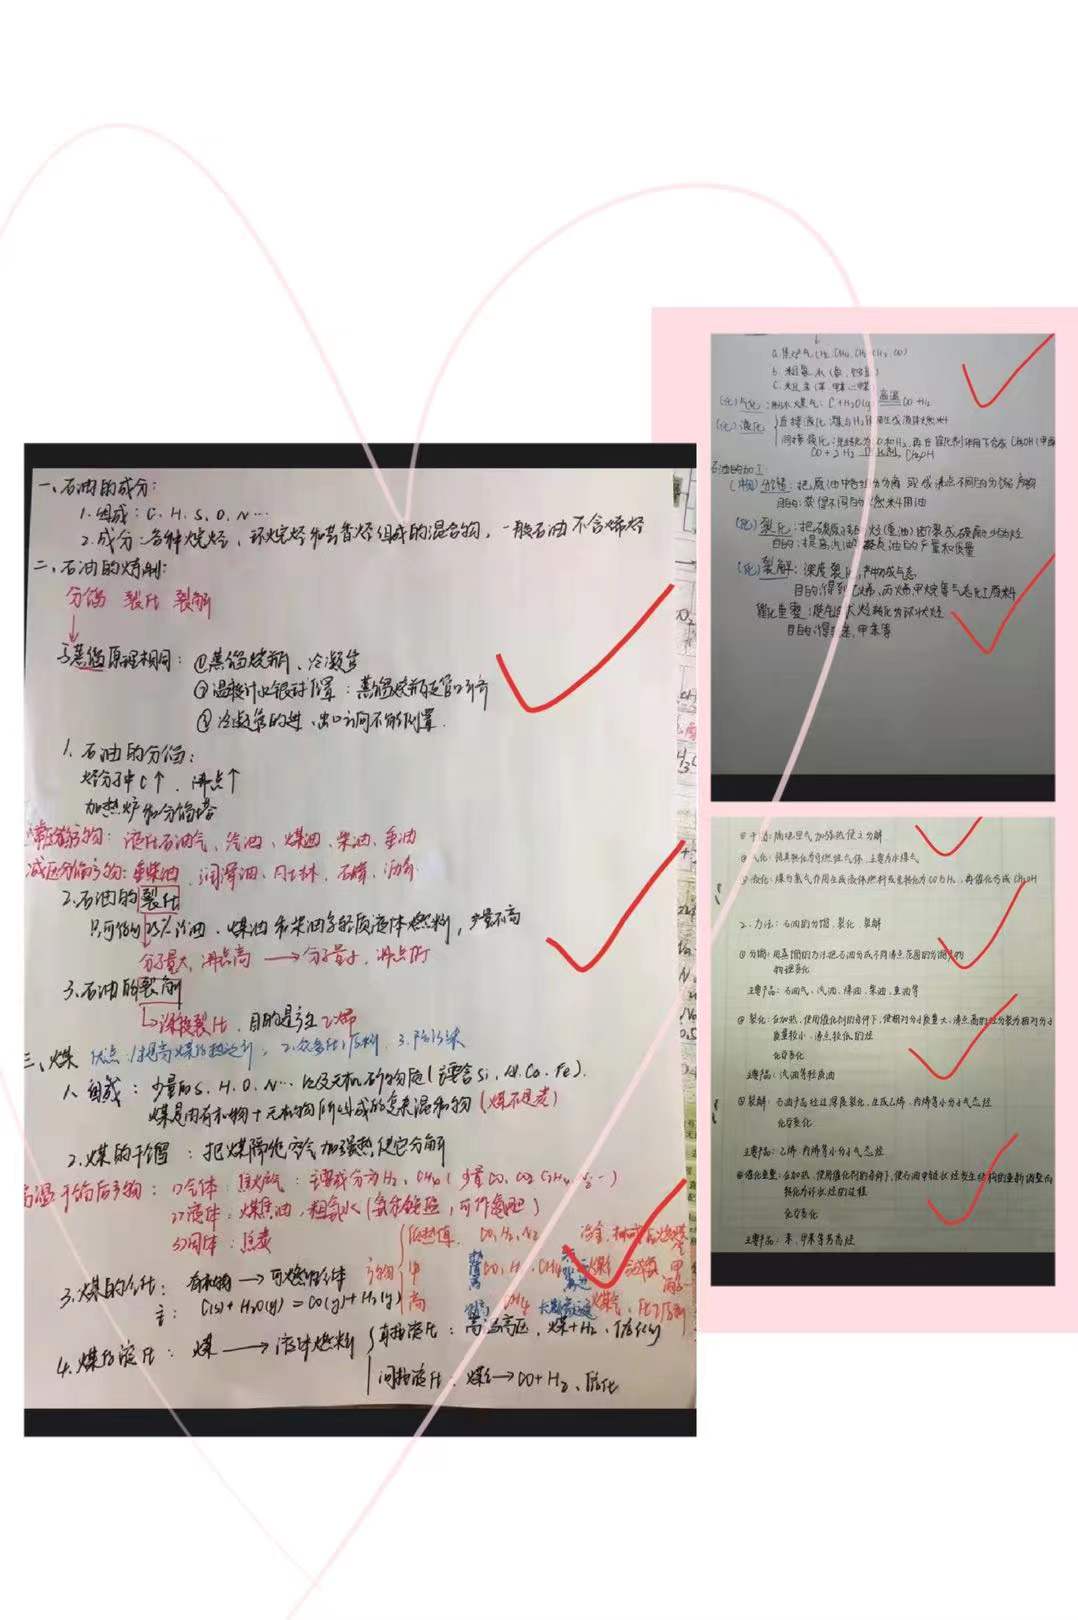 一、石油的成分:
1.组成: C、H、S、O、N…
2.成分:各种烷烃、环烷烃和芳香烃组成的混合物,一般石油不含烯烃
二、石油的炼制:
分馏 裂化 裂解
与蒸馏原理相同: ①蒸馏烧瓶、冷凝管
②温度计水银球位置:蒸馏烧瓶支管口
③冷凝管的进、出口方向不能倒置.
1. 石油的分馏:
烃分子中C↑, 沸点↑
加热炉和分馏塔
常压分馏产物: 液化石油气、汽油、煤油、柴油、重油
减压分馏产物:重柴油、润滑油、凡士林、石蜡、沥青
2.石油的裂化
只可得到25%汽油、煤油和柴油等轻质液体燃料,产量不高
分子量大,沸点高 → 分子量小,沸点低
3.石油的裂解
深度裂化,目的是产生乙烯
三、煤
1、组成: 少量的S、H、O、N…以及无机矿物质(主要含Si、Al、Ca、Fe).
煤是由有机物+无机物所组成的复杂混合物(煤不是炭)
2.煤的干馏: 把煤隔绝空气加强热使它分解
高温干馏后产物: 1)气体:焦炉气:主要成分为H₂、CH₄(少量CO、CO₂、C₂H₄、N₂…)
2)液体:煤焦油、粗氨水(氨和铵盐,可作氮肥)
3)固体:焦炭
产物 低热值, CO、H₂、N₂
中
高 CH₄
3.煤的气化: 有机物→可燃性气体
主: C(s)+H₂O(g)=CO(g)+H₂(g)
4.煤的液化: 煤→液体燃料 直接液化:高温高压,煤+H₂、催化剂
间接液化:煤→CO+H₂、催化
b. 粗氨水(氨、铵盐)
(化)气化:制水煤气: C+H₂O(g) 高温 CO+H₂
(化)液化 直接液化:煤与H₂作用生成液体燃料
CO+2H₂ CH₃OH
石油的加工
(物)分馏:把原油中各组分分离 或成沸点不同的分馏产物
目的:获得不同的燃料用油
(化)裂化:
(化)裂解:深度裂化,产物成气态
目的:得到乙烯、丙烯、甲烷等气态化工原料
目的:得苯、甲苯等
①干馏:隔绝空气加强热使之分解
②气化:将其转化为可燃性气体,主要为水煤气
③液化:煤与氢气作用生成液体燃料或先转化为CO与H₂,再催化合成CH₃OH
2.方法:石油的分馏、裂化、裂解
①分馏:用蒸馏的方法把石油分成不同沸点范围的分馏产物
物理变化
主要产品:石油气、汽油、煤油、柴油、重油等
②裂化:在加热、使用催化剂的条件下,使相对分子质量大、沸点高的烃分裂为相对分子
质量较小、沸点较低的烃
化学变化
主要产品:汽油等轻质油
③裂解:石油产品经过深度裂化,生成乙烯、丙烯等小分子气态烃
化学变化
主要产品:乙烯、丙烯等小分子气态烃
④催化重整:在加热、使用催化剂的条件下,使石油中链状烃发生结构的重新调整而
转化为环状烃的过程
化学变化
主要产品:苯、甲苯等芳香烃